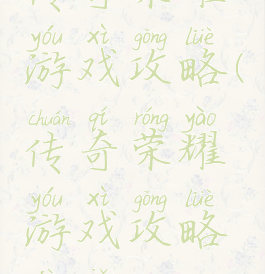 传奇荣耀
yóu xì gōng lüè
游戏攻略(
chuán qí róng yào
传奇荣耀
yóu xì gōng lüè
游戏攻略